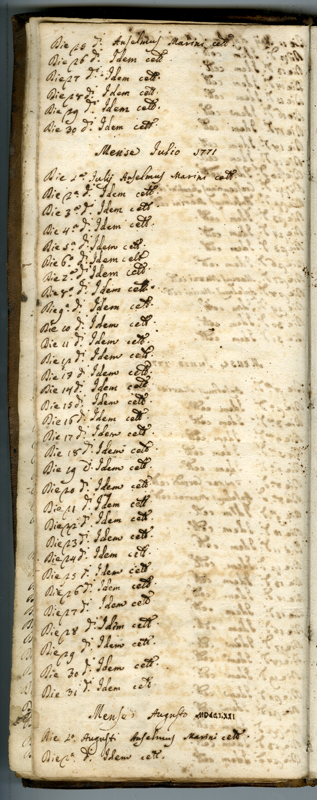 Die 25 d.i Anselmus Marini celt.
Die 26 d.i Idem celt.
Die 27 d.i Idem celt.
Die 28 d.i Idem celt.
Die 29 d.i Idem celt.
Die 30 d.i Idem celt.
Mense Julio 1771
Die p.a Julij Anselmus Marini celt.
Die 2.a d.i Idem celt.
Die 3.a d.i Idem celt.
Die 4.a d.i Idem celt.
Die 5.a d.i Idem celt.
Die 6.a d.i Idem celt.
Die 7.a d.i Idem celt.
Die 8.a d.i Idem celt.
Die 9.a d.i Idem celt.
Die 10 d.i Idem celt.
Die 11 d.i Idem celt.
Die 12 d.i Idem celt.
Die 13 d.i Idem celt.
Die 14 d.i Idem celt.
Die 15 d.i Idem celt.
Die 16 d.i Idem celt.
Die 17 d.i Idem celt.
Die 18 d.i Idem celt.
Die 19 d.i Idem celt.
Die 20 d.i Idem celt.
Die 21 d.i Idem celt.
Die 22 d.i Idem celt.
Die 23 d.i Idem celt.
Die 24 d.i Idem celt.
Die 25 d.i Idem celt.
Die 26 d.i Idem celt.
Die 27 d.i Idem celt.
Die 28 d.i Idem celt.
Die 29 d.i Idem celt.
Die 30 d.i Idem celt.
Die 31 d.i Idem celt.
Mense Augusto MDCCLXXI
Die p.a Augusti Anselmus Marini celt.
Die 2.a d.i Idem celt.